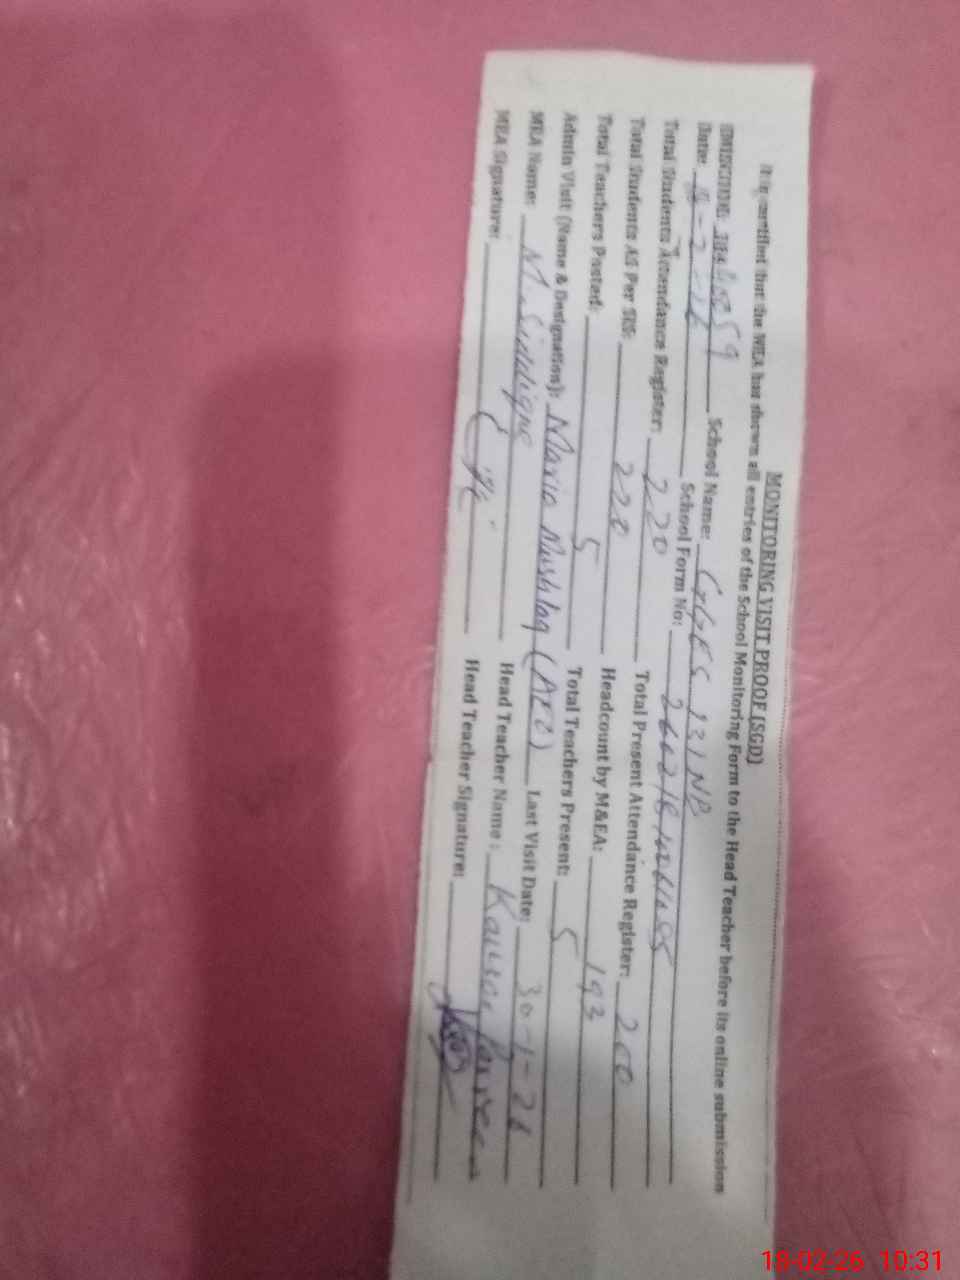 MONITORING VISIT PROOF (SGD)
It is certified that the MEA has shown all entries of the School Monitoring Form to the Head Teacher before its online submission
EMISCODE: School Name: GGES 131 NB
Date: School Form No:
Total Students Attendance Register: 220 Total Present Attendance Register: 200
Total Students AS Per SIS: 220 Headcount by M&EA: 193
Total Teachers Posted: 5 Total Teachers Present: 5
Admin Visit (Name & Designation): Maria Mushtaq (AEO) Last Visit Date: 30-1-26
MEA Name: M. Siddique Head Teacher Name: Kausar Parveen
MEA Signature: Head Teacher Signature:
18-02-26 10:31